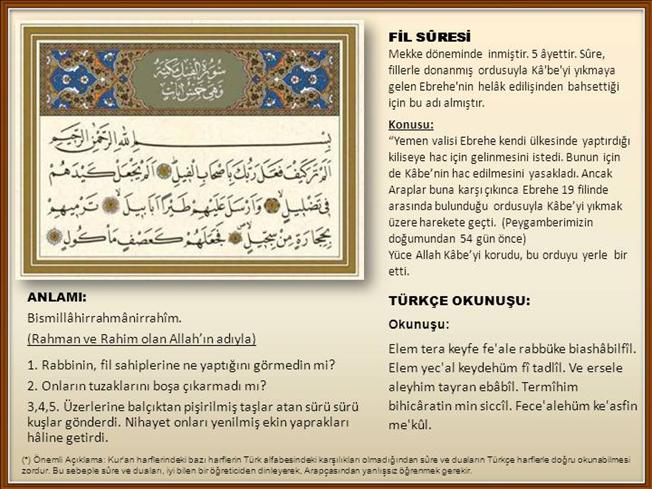 سُورَةُ الْفِيلِ مَكِّيَّةٌ
وَهِيَ خَمْسُ اٰيَاتٍ
بِسْمِ اللّٰهِ الرَّحْمٰنِ الرَّحِيمِ
اَلَمْ تَرَ كَيْفَ فَعَلَ رَبُّكَ بِاَصْحَابِ الْفِيلِ اَلَمْ يَجْعَلْ كَيْدَهُمْ
فِى تَضْلِيلٍ وَاَرْسَلَ عَلَيْهِمْ طَيْرًا اَبَابِيلَ تَرْمِيهِمْ
بِحِجَارَةٍ مِنْ سِجِّيلٍ فَجَعَلَهُمْ كَعَصْفٍ مَأْكُولٍ
FİL SÛRESİ
Mekke döneminde inmiştir. 5 âyettir. Sûre,
fillerle donanmış ordusuyla Kâ'be'yi yıkmaya
gelen Ebrehe'nin helâk edilişinden bahsettiği
için bu adı almıştır.
Konusu:
“Yemen valisi Ebrehe kendi ülkesinde yaptırdığı
kiliseye hac için gelinmesini istedi. Bunun için
de Kâbe’nin hac edilmesini yasakladı. Ancak
Araplar buna karşı çıkınca Ebrehe 19 filinde
arasında bulunduğu ordusuyla Kâbe’yi yıkmak
üzere harekete geçti. (Peygamberimizin
doğumundan 54 gün önce)
Yüce Allah Kâbe’yi korudu, bu orduyu yerle bir
etti.
ANLAMI:
Bismillâhirrahmânirrahîm.
(Rahman ve Rahim olan Allah’ın adıyla)
1. Rabbinin, fil sahiplerine ne yaptığını görmedin mi?
2. Onların tuzaklarını boşa çıkarmadı mı?
3,4,5. Üzerlerine balçıktan pişirilmiş taşlar atan sürü sürü
kuşlar gönderdi. Nihayet onları yenilmiş ekin yaprakları
hâline getirdi.
TÜRKÇE OKUNUŞU:
Okunuşu:
Elem tera keyfe fe'ale rabbüke biashâbilfîl.
Elem yec'al keydehüm fî tadlîl. Ve ersele
aleyhim tayran ebâbîl. Termîhim
bihicâratin min siccîl. Fece'alehüm ke'asfin
me'kûl.
(*) Önemli Açıklama: Kur'an harflerindeki bazı harflerin Türk alfabesindeki karşılıkları olmadığından sûre ve duaların Türkçe harflerle doğru okunabilmesi
zordur. Bu sebeple sûre ve duaları, iyi bilen bir öğreticiden dinleyerek, Arapçasından yanlışsız öğrenmek gerekir.